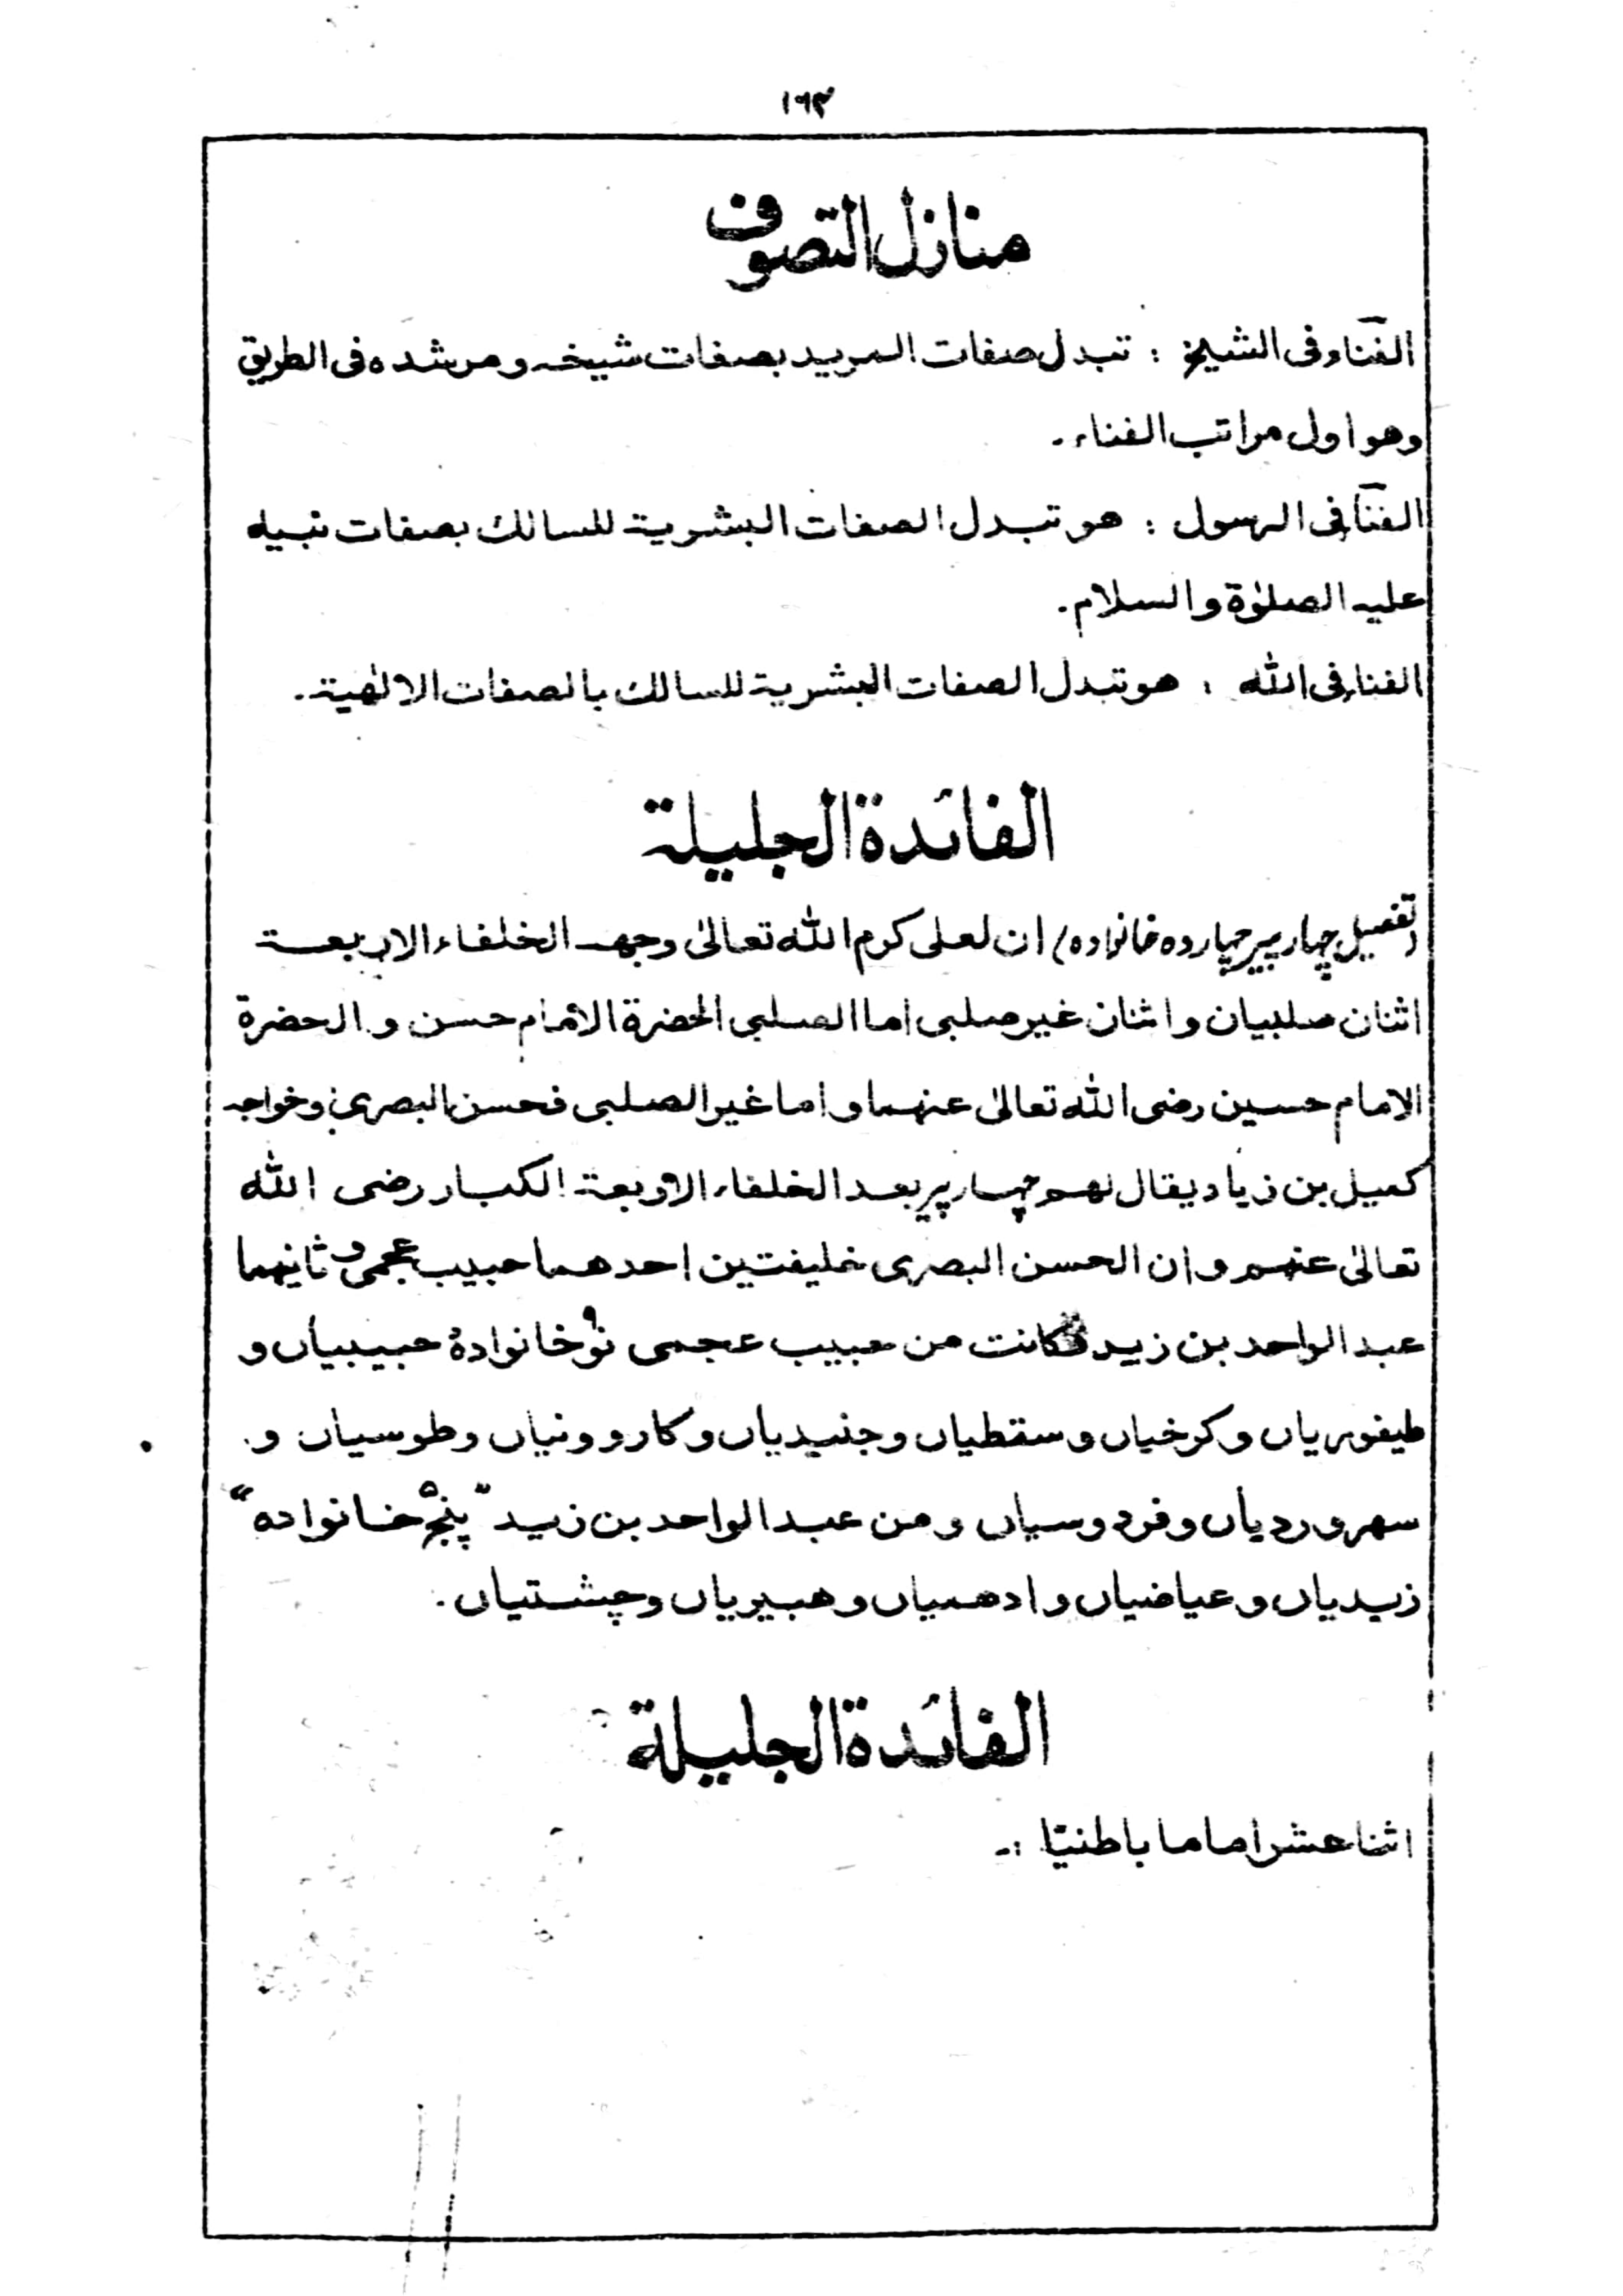 ۱۶۳
منازل التصوف
الفناء فی الشیخ : تبدل صفات المرید بصفات شیخہ ومرشدہ فی الطریق
وھو اول مراتب الفناء۔
الفنا فی الرسول : ھو تبدل الصفات البشریۃ للسالک بصفات نبیہ
علیہ الصلوٰۃ والسلام۔
الفناء فی اللہ : ھو تبدل الصفات البشریۃ للسالک بالصفات الالٰھیۃ۔
الفائدۃ الجلیلۃ
(تفصیل چہار پیر چہاردہ خانوادہ) ان لعلی کرم اللہ تعالیٰ وجھہ الخلفاء الاربعۃ
اثنان صلبیان واثنان غیر صلبی اما الصلبی الحضرۃ الامام حسن والحضرۃ
الامام حسین رضی اللہ تعالیٰ عنہما واما غیر الصلبی فحسن البصری وخواجہ
کمیل بن زیاد یقال لھم چہار پیر بعد الخلفاء الاربعۃ الکبار رضی اللہ
تعالیٰ عنہم وان الحسن البصری خلیفتین احدھما حبیب عجمی و ثانیھما
عبد الواحد بن زید فکانت من حبیب عجمی نو۹ خانوادۂ حبیبیاں و
طیفوریاں وکرخیاں وسقطیاں وجنیدیاں وکارو ونیاں وطوسیاں و
سہروردیاں وفردوسیاں ومن عبد الواحد بن زید "پنج۵ خانوادہ"
زیدیاں وعیاضیاں وادھمیاں وھبیریاں وچشتیاں۔
الفائدۃ الجلیلۃ
اثنا عشر اماما باطنیّا :۔